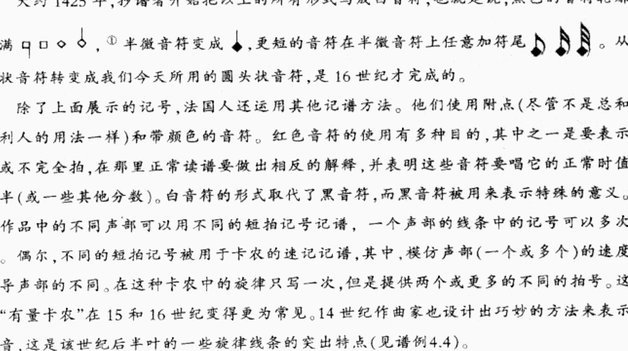 大约 1425 年,抄谱者开始把以上的所有形式写成白音符,也就是说,黑色的音符轮廓
满 , ①半微音符变成 ,更短的音符在半微音符上任意加符尾 。从
状音符转变成我们今天所用的圆头状音符,是 16 世纪才完成的。
除了上面展示的记号,法国人还运用其他记谱方法。他们使用附点(尽管不是总和
利人的用法一样)和带颜色的音符。红色音符的使用有多种目的,其中之一是要表示
或不完全拍,在那里正常读谱要做出相反的解释,并表明这些音符要唱它的正常时值
半(或一些其他分数)。白音符的形式取代了黑音符,而黑音符被用来表示特殊的意义。
作品中的不同声部可以用不同的短拍记号记谱,一个声部的线条中的记号可以多次
。偶尔,不同的短拍记号被用于卡农的速记记谱,其中,模仿声部(一个或多个)的速度
导声部的不同。在这种卡农中的旋律只写一次,但是提供两个或更多的不同的拍号。这
“有量卡农”在 15 和 16 世纪变得更为常见。14 世纪作曲家也设计出巧妙的方法来表示
音,这是该世纪后半叶的一些旋律线条的突出特点(见谱例4.4)。